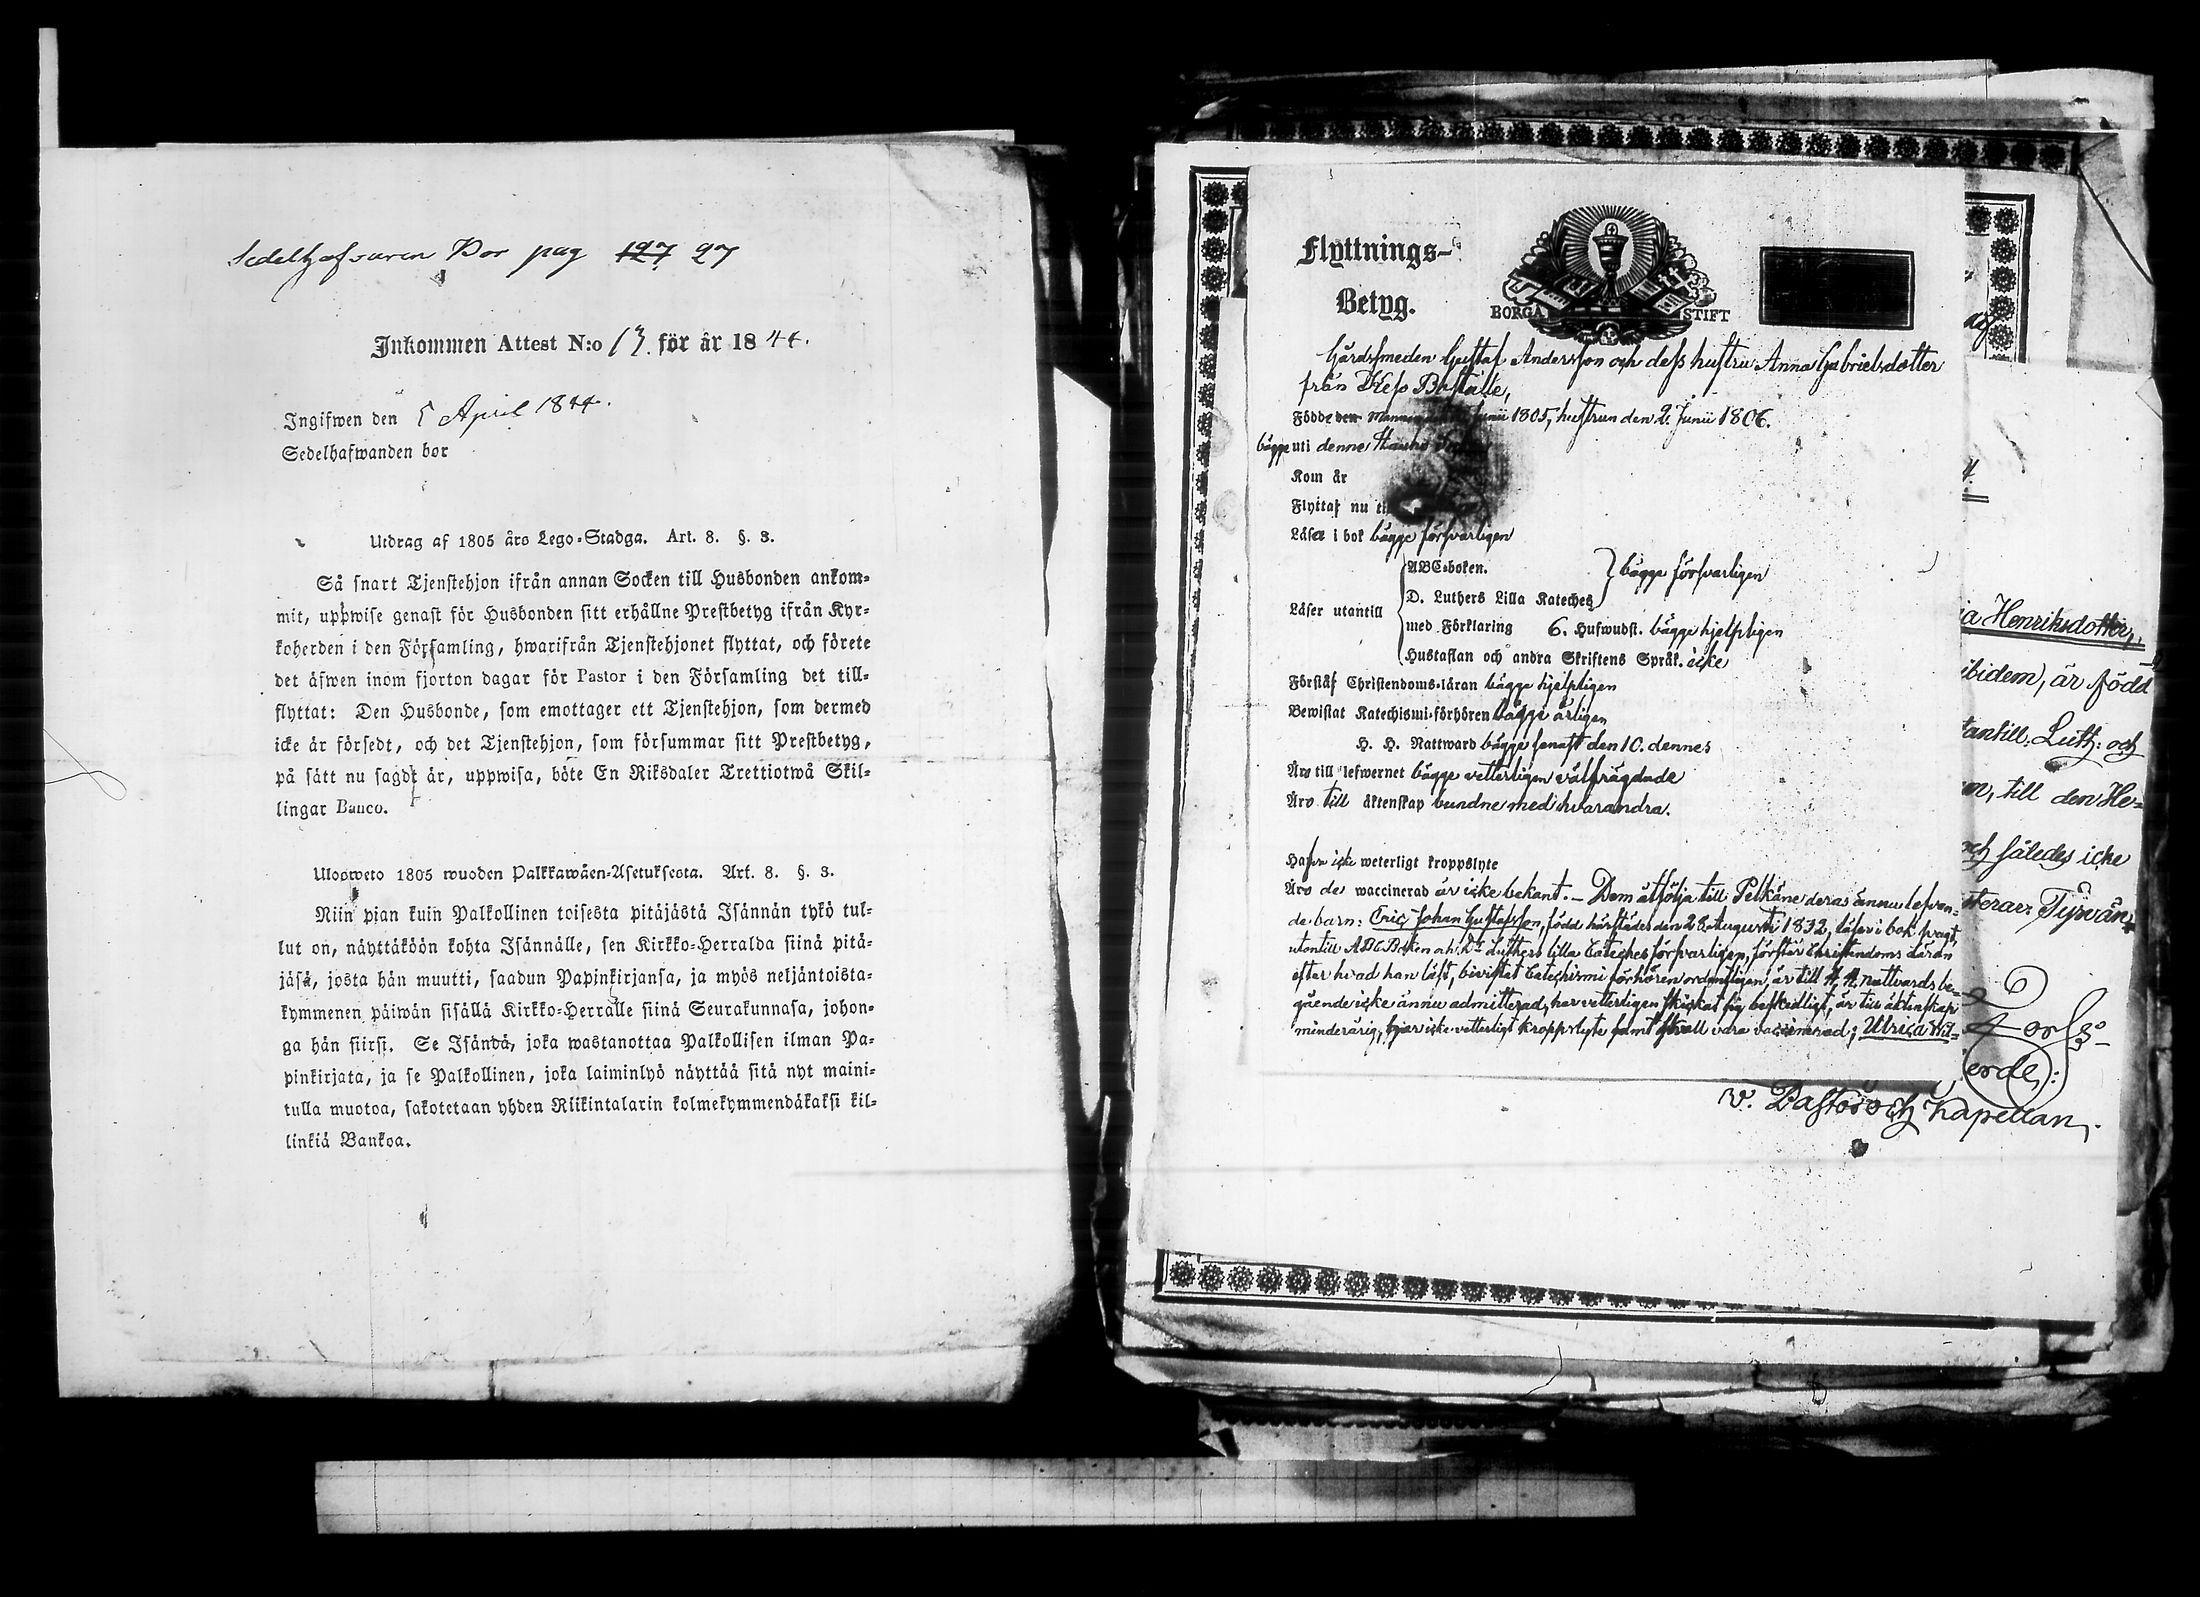 Sedelhafvaren Bor pag 127 97
Inkommen Attest N:o 13. för år 1844.
Ingifwen den 5 April 1844.
Sedelhafwanden bor
Utdrag af 1805 års Lego-Stadga. Art. 8. §. 3.
Så snart Tjenstehjon ifrån annan Socken till Husbonden ankom-
mit, uppwise genast för Husbonden sitt erhållne Prestbetyg ifrån Kyr-
koherden i den Församling, hwarifrån Tjenstehjonet flyttat, och förete
det äfwen inom fjorton dagar för Pastor i den Församling det till-
flyttat: Den Husbonde, som emottager ett Tjenstehjon, som dermed
icke är försedt, och det Tjenstehjon, som försummar sitt Prestbetyg,
på sätt nu sagdt är, uppwisa, böte En Riksdaler Trettiotwå Skil-
lingar Banco.
Ulosweto 1805 wuoden Palkkawäen-Asetuksesta. Art. 8. §. 3.
Niin pian kuin Palkollinen toisesta pitäjästä Isännän tykö tul-
lut on, näyttäköön kohta Isännälle, sen Kirkko-Herralda siinä pitä-
jäsä, josta hän muutti, saadun Papinkirjansa, ja myös neljäntoista-
kymmenen päiwän sisällä Kirkko-Herralle siinä Seurakunnasa, johon-
ga hän siirsi. Se Isändä, joka wastanottaa Palkollisen ilman Pa-
pinkirjata, ja se Palkollinen, joka laiminlyö näyttää sitä nyt maini-
tulla muotoa, sakotetaan yhden Riikintalarin kolmekymmendäkaksi kil-
linkiä Bankoa.
Flyttnings-
Betyg.
BORGÅ STIFT
Gårdssmeden Gustaf Andersson och dess hustru Anna Gabrielsdotter
från
Födde den Mannen Junii 1805, hustrun den 2. Junii 1806.
bägge uti denne Hauho
Kom år
Flyttat nu
Läsa i bok bägge försvarligen
ABC-boken.
D. Luthers Lilla Kateches
bägge försvarligen
Läser utantill
med Förklaring 6. Hufwudst. bägge hjelpligen
Hustaflan och andra Skriftens Språk. icke
Förstår Christendoms-läran bägge hjelpligen
Bewistat Katechismi-förhören bägge årligen
H. H. Nattward bägge senast den 10. dennes
Äro till lefwernet bägge vetterligen välfrägdade
Äro till äktenskap bundne med hvarandra.
Hafva icke weterligt kroppslyte
Äro de waccinerad är icke bekant. – Dem åtfölja till Pelkäne deras ännu lefvan-
de barn: Eric Johan Gustafsson, född härstädes den 28 Augusti 1832, läser i bok svagt,
utantill ABC Boken och Dr Luthers Lilla Cateches försvarligen, förstår Christendoms Läran
efter hvad han läst, bevistat Catechismi förhören ordentligen, är till H. H. nattvards be-
gående icke ännu admitterad, har vetterligen skickat sig beskedligt, är till äktenskap
minderårig, har icke vetterligt kroppslyte samt skall vara vaccinerad; Ulrica Wil-
a Henriksdotter,
ibidem, är född
tantill: Luth: och
till den He-
och således icke
Tyrvän
v. Pastor och Kapellan.